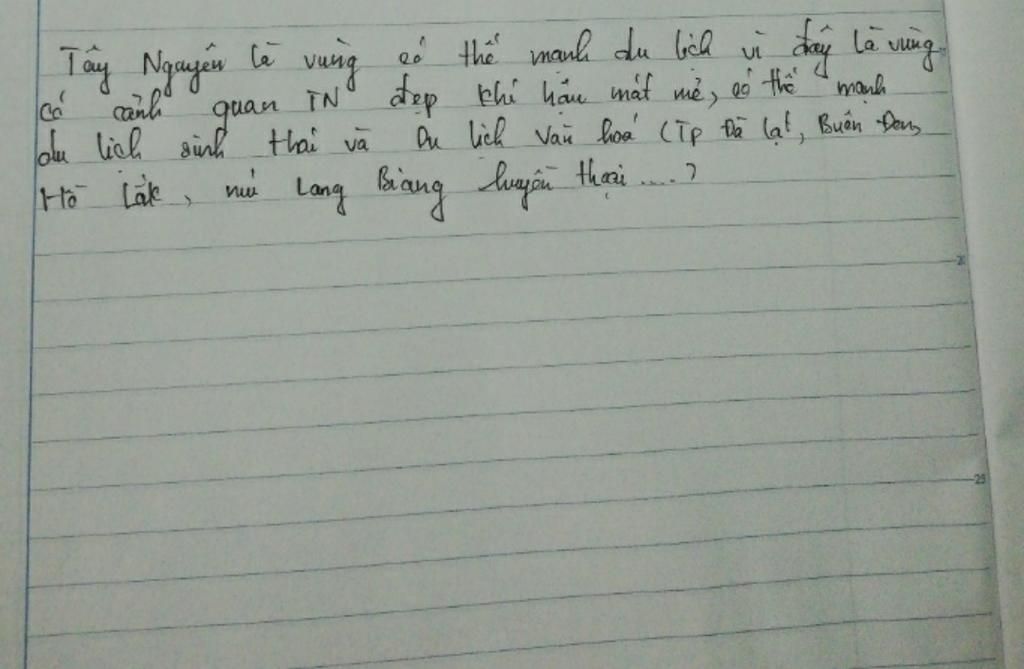 Tây Nguyên là vùng có thế mạnh du lịch vì đây là vùng
có cảnh quan TN đẹp khí hậu mát mẻ, có thế mạnh
du lịch sinh thái và Du lịch văn hoá (TP Đà Lạt, Buôn Đôn,
Hồ Lắk, núi Lang Biang huyền thoại ....)
20
25